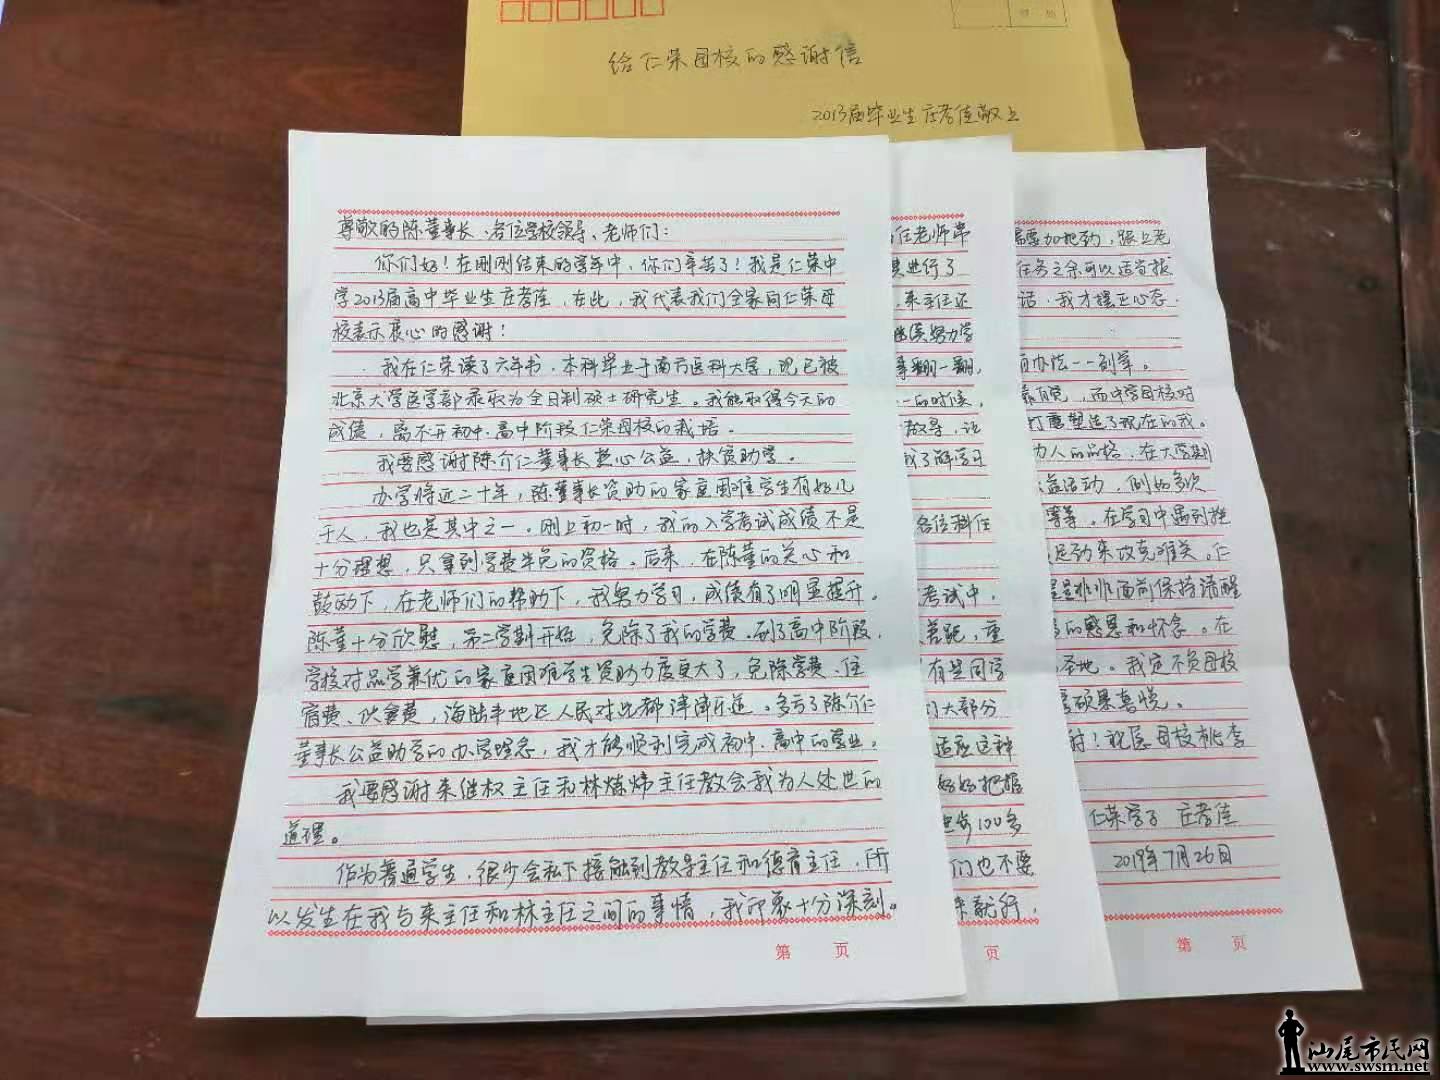 给仁荣母校的感谢信
2013届毕业生庄孝佳献上
尊敬的陈董事长、各位学校领导、老师们:
你们好!在刚刚结束的学年中,你们辛苦了!我是仁荣中
学2013届高中毕业生庄孝佳,在此,我代表我们全家向仁荣母
校表示衷心的感谢!
我在仁荣读了六年书,本科毕业于南方医科大学,现已被
北京大学医学部录取为全日制硕士研究生。我能取得今天的
成绩,离不开初中、高中阶段仁荣母校的栽培。
我要感谢陈介仁董事长热心公益,扶贫助学。
办学将近二十年,陈董事长资助的家庭困难学生有好几
千人,我也是其中之一。刚上初一时,我的入学考试成绩不是
十分理想,只拿到学费半免的资格。后来,在陈董的关心和
鼓励下,在老师们的帮助下,我努力学习,成绩有了明显提升。
陈董十分欣慰,第二学期开始,免除了我的学费。到了高中阶段,
学校对品学兼优的家庭困难学生资助力度更大了,免除学费、住
宿费、伙食费,海陆丰地区人民对此都津津乐道。多亏了陈介仁
董事长公益助学的办学理念,我才能顺利完成初中、高中的学业。
我要感谢来继权主任和林炼炜主任教会我为人处世的
道理。
作为普通学生,很少会私下接触到教导主任和德育主任,所
以发生在我与来主任和林主任之间的事情,我印象十分深刻。
第 页
任老师带
进行了
,来主任还
继续努力学
事翻一翻,
一的时候,
教导,让
我了解学习
各位科任
考试中,
差距,重
有些同学
们大部分
适应这种
好好把握
进步100多
们也不要
来就行,
页
需要加把劲,跟上老
任务之余可以适当找
话,我才摆正心态,
有办法一一列举。
,而中学母校对
打磨塑造了现在的我。
为人的品格,在大学期
益活动,例如多次
等等。在学习中遇到挫
足劲来攻克难关。在
是是非非面前保持清醒
的感恩和怀念。在
圣地。我定不负母校
硕果喜悦。
时!祝愿母校桃李
仁荣学子 庄孝佳
2019年7月26日
第 页
汕尾市民网
www.swsm.net